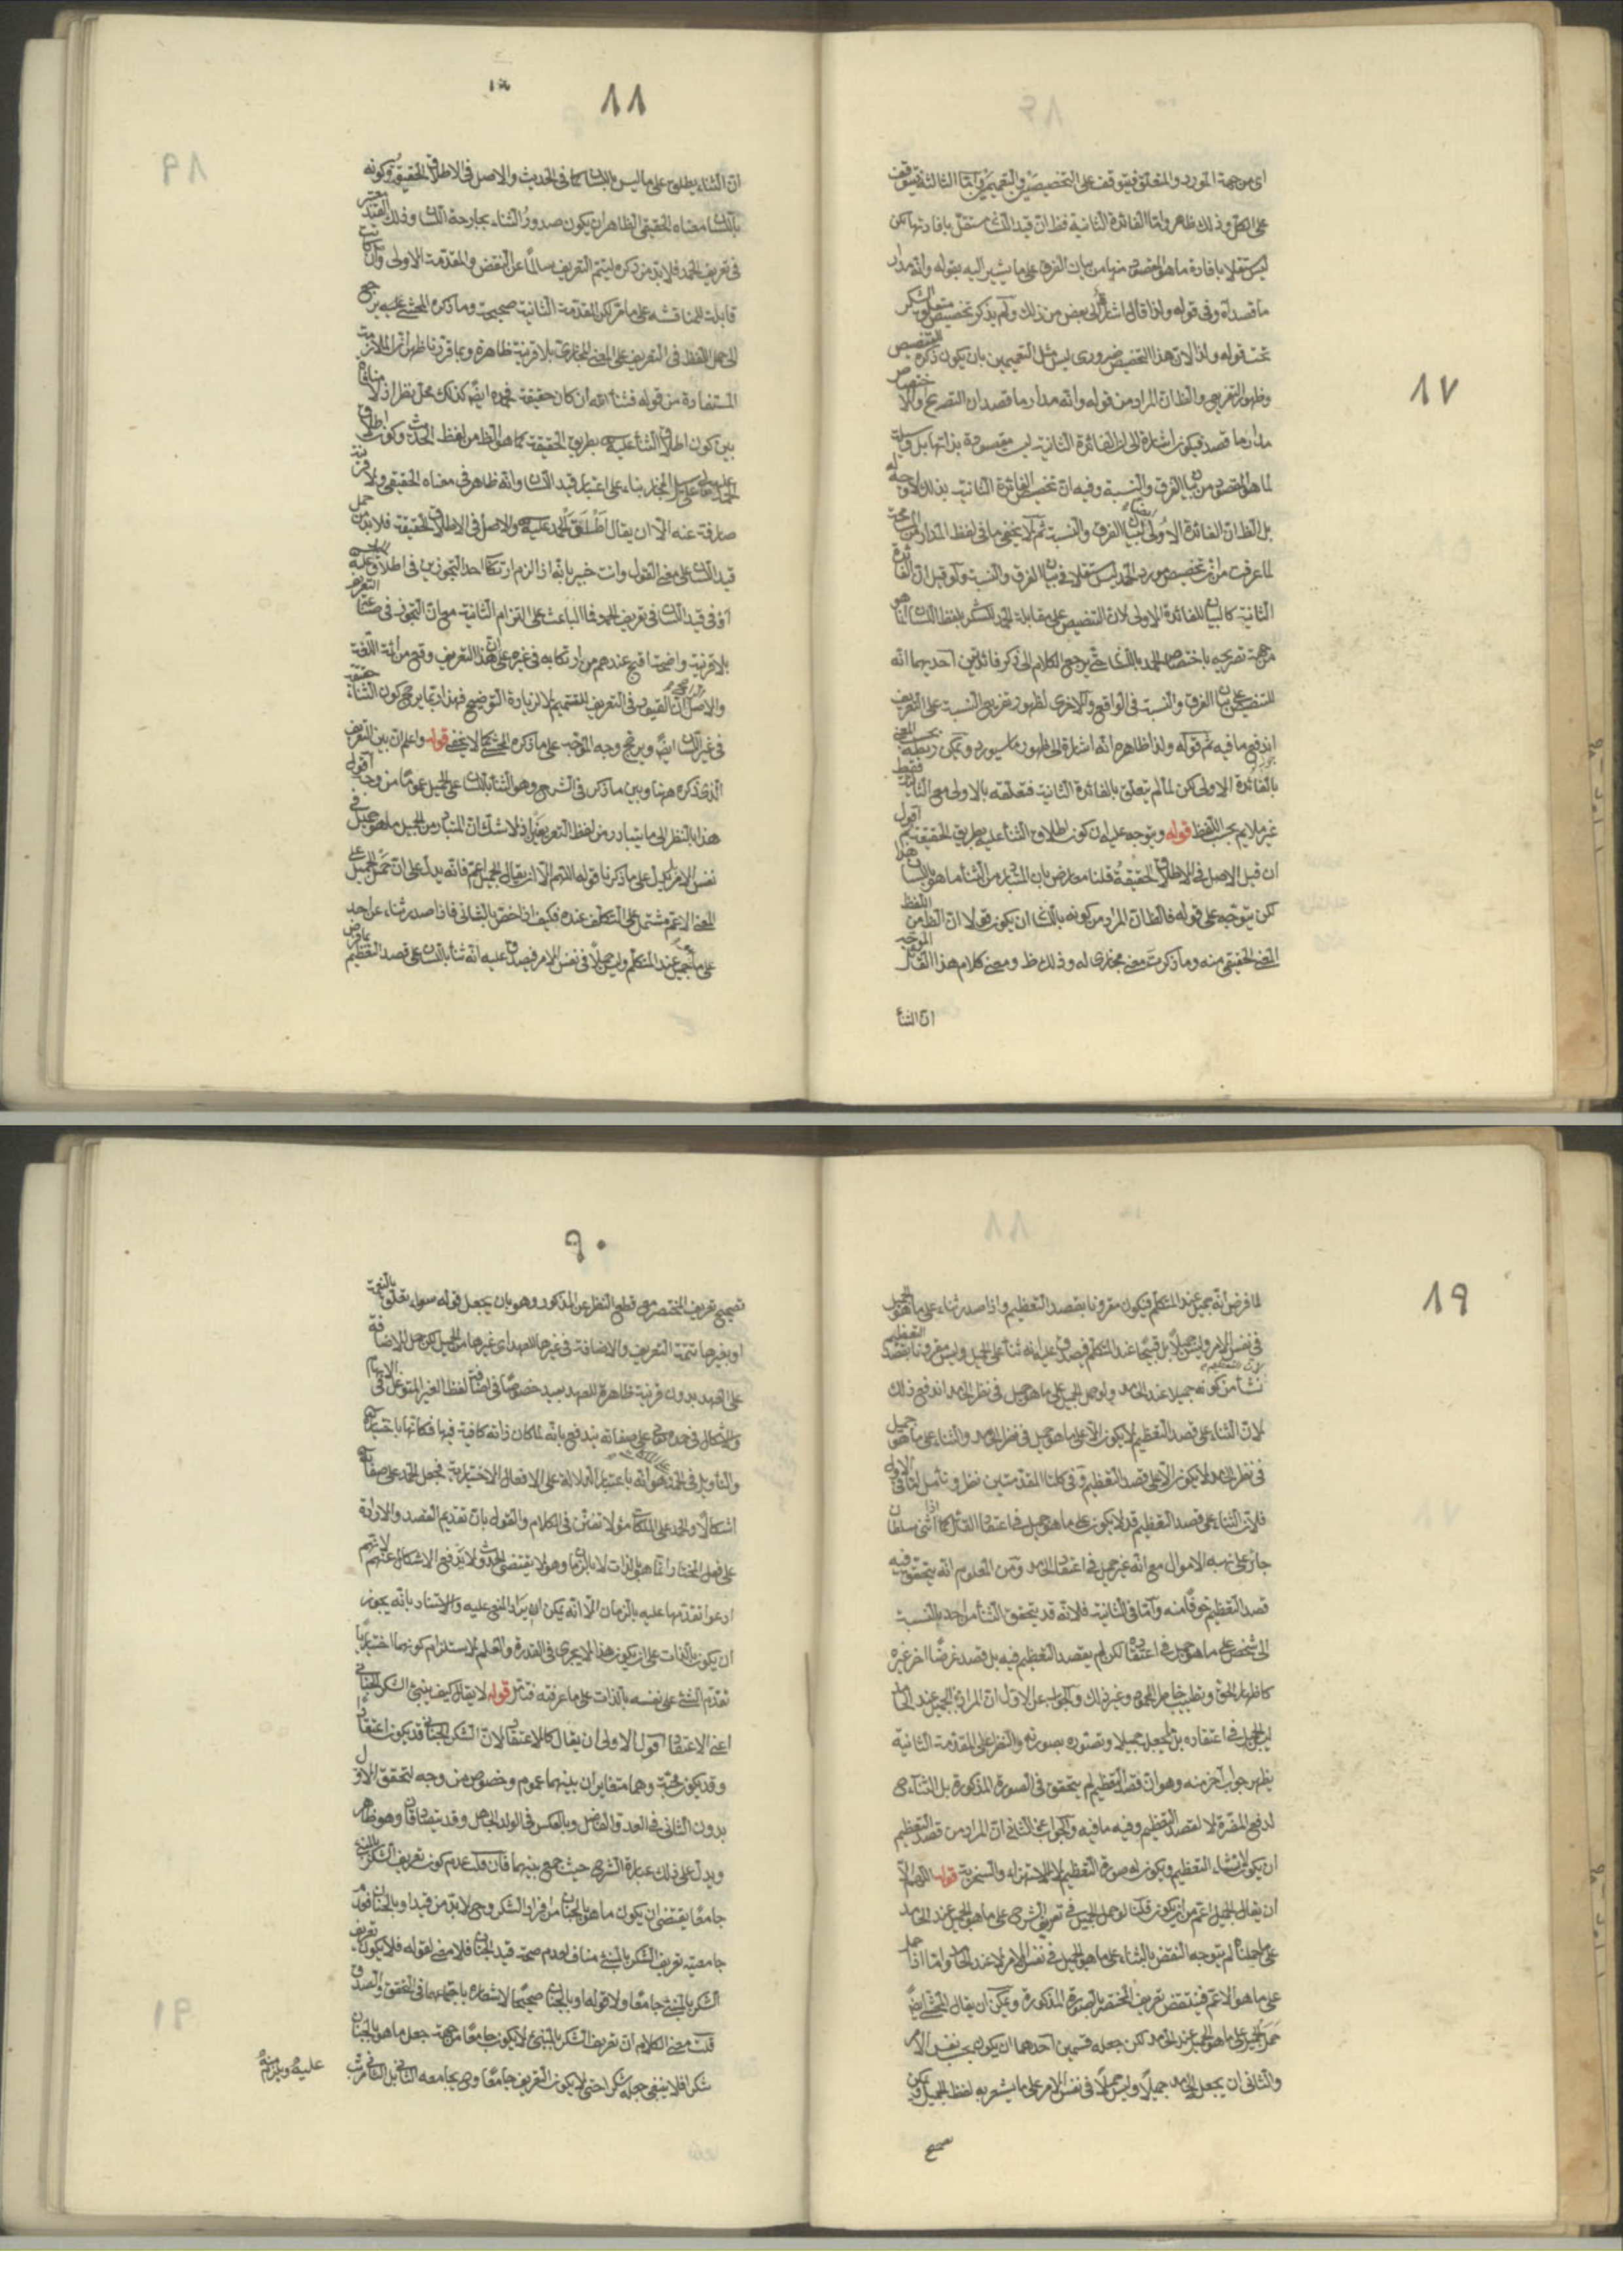 ١٧
اى من جهة المورد والمتعلق فيتوقف على التخصيصين والتعميمين واما الثالثة فيتوقف
على الكل وذلك ظاهر واما الفائدة الثانية فظ ان قيد اللسان مستقل بافادتها لكن
ليس مستقلا بافادة ما هو المقصود منها من بيان الفرق على ما يشير اليه بقوله وانه مدار
ما قصداه وفى قوله واذا قال اشار الى بعض من ذلك ولم يذكر تخصيص متعلق الشكر
تحت قوله واذ الان هذا التخصيص ضرورى ليس مثل التعميمين بان يكون ذكره للتخصيص
وظهور التفريع والظ ان المراد من قوله وانه مدار ما قصد ان التصريح والاختصاص
مدار ما قصد فيكون اشارة الى ان الفائدة الثانية ليست مقصودة بذاتها بل وسيلة
لما هو المقصود من بيان الفرق والنسبة وفيه ان تخصيص الفائدة الثانية بذلك لا وجه له
بل الظ ان الفائدة الاولى ايضا لبيان الفرق والنسبة ثم لا يخفى ما فى لفظ المدار من المسامحة
لما عرفت من ان تخصيص مورد الحمد ليس مستقلا فى بيان الفرق والنسبة ولو قيل ان الفائدة
الثانية كالبيان للفائدة الاولى لان التنصيص على مقابلة الحمد للشكر بلفظ اللسان انما هو
من جهة تصريحه باختصاص الحمد باللسان حتى يرجع الكلام الى ذكر فائدتين احديهما انه
للتنصيص على بيان الفرق والنسبة فى الواقع والاخرى لظهور تفريع النسبة على التعريف
اندفع ما فيه ثم قوله ولذا ظاهره انه اشارة الى ظهور ما سيورد ويمكن ربطه بحسب المعنى
بالفائدة الاولى لكن لما لم يتعلق بالفائدة الثانية فتعلقه بالاولى مع الثانية فقط
غير ملايم بحسب اللفظ قوله ويتوجه عليه ان كون اطلاق الثناء عليه بطريق الحقيقة ثم اقول
ان قيل الاصل فى الاطلاق الحقيقة قلنا معارض بان المتبادر من الثناء ما هو باللسان هذا
لكن يتوجه على قوله فالظ ان المراد من كونه باللسان ان يكون قولا ان الظ من اللفظ
المعنى الحقيقى منه وما ذكرت معنى مجازى له وذلك ظ ومعنى كلام هذا القائل الموجه
ان الثناء
١٨
ان الثناء يطلق على ما ليس باللسان كما فى الحديث والاصل فى الاطلاق الحقيقة وكونه
باللسان معناه الحقيقى الظاهر ان يكون صدور الثناء بجارحة اللسان وذلك القيد معتبر
فى تعريف الحمد فلا بد من ذكره ليتم التعريف سالما عن النقض والمقدمة الاولى وان كانت
قابلة للمناقشة على ما مر لكن المقدمة الثانية صحيحة وما ذكره المحشى عليه يرجع
الى حمل اللفظ فى التعريف على المعنى المجازى بلا قرينة ظاهرة وبما قررنا ظهر ان الملازمة
المستفادة من قوله فثناء الله ان كان حقيقة فحمده ايضا كذلك محل نظر اذ لا منافاة
بين كون اطلاق الثناء عليه بطريق الحقيقة كما هو الظ من لفظ الحديث وكون اطلاق
الحمد على سبيل المجاز بناء على اعتبار قيد اللسان وانه ظاهر فى معناه الحقيقى ولا قرينة
صارفة عنه الا ان يقال اطلق الحمد عليه والاصل فى الاطلاق الحقيقة فلا بد من حمل
قيد اللسان على معنى القول وانت خبير بانه اذا لزم ارتكاب احد التجوزين فى اطلاق عليه
او فى قيد اللسان فى تعريف الحمد فما الباعث على التزام الثانية مع ان التجوز فى التعريف
بلا قرينة واضحة اقبح عندهم من ارتكابه فى غيره على ان هذا التعريف وقع من ائمة اللغة
والاصل ان القيود فى التعريف للتتميم لا لزيادة التوضيح فهذا ربما يرجح كون الثناء حقيقة
فى غير اللسان ايضا ويرجح وجه الموجه على ما ذكره المحشى كما لا يخفى قوله واعلم ان بين التعريف
الذى ذكره ههنا وبين ما ذكر فى الشرح وهو الثناء باللسان على الجميل عموما من وجه اقول
هذا بالنظر الى ما يتبادر من لفظ التعريفين اذ لا شك ان المتبادر من الجميل ما هو جميل فى
نفس الامر يدل على ما ذكرنا قوله اللهم الا ان يقال الجميل اعم فانه يدل على ان حمل الجميل على
المعنى الاعم مشتمل على التكلف عنده فكيف اذا خص بالثانى فاذا صدر ثناء عن احد
على ما هو جميل عند المتكلم وليس جميلا فى نفس الامر فيصدق عليه انه ثناء باللسان على قصد التعظيم
١٩
لما فرض انه جميل عند المتكلم فيكون مقرونا بقصد التعظيم واذا صدر ثناء على ما هو جميل
فى نفس الامر وليس جميلا بل قبيحا عند المتكلم فيصدق عليه انه ثناء على الجميل وليس مقرونا بقصد التعظيم
نشأ من كونه جميلا عند الحامد ولو حمل الجميل على ما هو جميل فى نظر الحامد اندفع ذلك
لان الثناء على قصد التعظيم لا يكون الا على ما هو جميل فى نظر الحامد والثناء على ما هو جميل
فى نظر الحامد لا يكون الا على قصد التعظيم وفى كلتا المقدمتين نظر وتأمل اما فى الاولى
فلان الثناء على قصد التعظيم قد لا يكون على ما هو جميل فى اعتقاد القائل كما اذا اثنى سلطان
جائر على نهبه الاموال مع انه غير جميل فى اعتقاد الحامد ومن المعلوم انه يتحقق فيه
قصد التعظيم خوفا منه واما فى الثانية فلانه قد يتحقق الثناء من احد بالنسبة
الى شخص على ما هو جميل فى اعتقاده لكن لم يقصد التعظيم فيه بل قصد غرضا اخر غيره
كاظهار الحق وتطييب خاطر المحمود وغير ذلك والجواب عن الاول ان المراد بالجميل عند الحامد
ليس الجميل فى اعتقاده بل ما يجعل جميلا وتصوره بصورته والنظر على المقدمة الثانية
يظهر جواب آخر منه وهو ان قصد التعظيم لم يتحقق فى الصورة المذكورة بل الثناء ح
لدفع المضرة لا لقصد التعظيم وفيه ما فيه والجواب عن الثانى ان المراد من قصد التعظيم
ان يكون لانشاء التعظيم ويكون له صورة التعظيم لا للاستهزاء والسخرية قوله اللهم الا
ان يقال الجميل اعم من ان يكون قلنا لو حمل الجميل فى تعريف الشرح على ما هو الجميل عند الحامد
على ما حملناه لم يتوجه النقض بالثناء على ما هو الجميل فى نفس الامر لا عند الحامد واما اذا حمل
على ما هو الاعم فينتقض تعريف المختصر بالصورة المذكورة ويمكن ان يقال المحشى ايضا
حمل الجميل على ما هو الجميل عند الحامد لكن جعله قسمين احدهما ان يكون بحسب نفس الامر
والثانى ان يجعل الحامد جميلا وليس جميلا فى نفس الامر على ما يشعر به لفظ الجميل ويمكن
تصحيح
٢٠
تصحيح تعريف المختصر مع قطع النظر عن المذكور وهو بان يجعل قوله سواء تعلق بالنعمة
او بغيرها تتمة التعريف والاضافة فى غيرها للعهد اى غيرها من الجميل لكن حمل الاضافة
على العهد بدون قرينة ظاهرة للعهد بعيد خصوصا فى اضافة لفظ الغير المتوغل فى الابهام
والاشكال فى حده تعالى على صفاته يندفع بانه لما كان ذاته كافية فيها فكانها باختياره
والتأويل فى الحمد هو انه باعتبار الدلالة على الافعال الاختيارية فجعل الحمد على صفاته
اشكالا والحمد على الملكات مؤولا تفنن فى الكلام والقول بان تقديم القصد والارادة
على فعل المختار انما هو بالذات لا بالزمان وهو لا يقتضى الحدوث ولا يدفع الاشكال عنهم لانهم
ادعوا تقدمها عليه بالزمان الا انه يمكن ايراد المنع عليه والاسناد بانه يجوز
ان يكون بالذات على ان يكون هذا لا يجرى فى القدرة والعلم لاستلزام كونهما اختياريا
تقدم الشئ على نفسه بالذات على ما عرفته فتأمل قوله لا يقال كيف ينبئ الشكر الجنانى
اعنى الاعتقاد اقول الاولى ان يقال كالاعتقاد لان الشكر الجنانى قد يكون اعتقادا
وقد يكون محبة وهما متغايران بينهما عموم وخصوص من وجه لتحقق الاول
بدون الثانى فى العدو الفاضل وبالعكس فى الولد الجاهل وقد يتصادقان وهو ظاهر
ويدل على ذلك عبارة الشرح حيث جمع بينهما فان قلت عدم كون تعريف الشكر بالمنبئ
جامعا يقتضى ان يكون ما هو بالجنان من افراد الشكر وح لا بد من قيد او بالجنان فعدم
جامعية تعريف الشكر بالمنبئ مناف لعدم صحة قيد الجنان فلا معنى لقوله فلا يكون تعريف
الشكر بالمنبئ جامعا ولا قوله او بالجنان صحيحا لاشعاره باجتماعهما فى التحقق والصدق
قلت معنى الكلام ان تعريف الشكر بالمنبئ لا يكون جامعا من جهة جعل ما هو بالجنان
شكرا فلا ينبغى جعله شكرا حتى لا يكون التعريف جامعا وح يجامعه الثانى بل الثانى مترتب
عليه ويلزمه